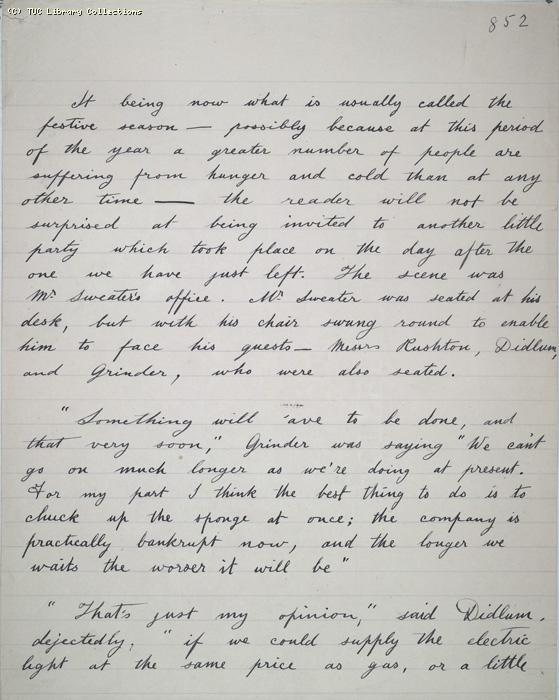 (C) TUC Library Collections
852
It being now what is usually called the
festive season — possibly because at this period
of the year a greater number of people are
suffering from hunger and cold than at any
other time — the reader will not be
surprised at being invited to another little
party which took place on the day after the
one we have just left. The scene was
Mr Sweater's office. Mr Sweater was seated at his
desk, but with his chair swung round to enable
him to face his guests — Messrs Rushton, Didlum,
and Grinder, who were also seated.
"Something will 'ave to be done, and
that very soon," Grinder was saying "We can't
go on much longer as we're doing at present.
For my part I think the best thing to do is to
chuck up the sponge at once; the company is
practically bankrupt now, and the longer we
waits the worser it will be"
"That's just my opinion," said Didlum.
dejectedly. "if we could supply the electric
light at the same price as gas, or a little